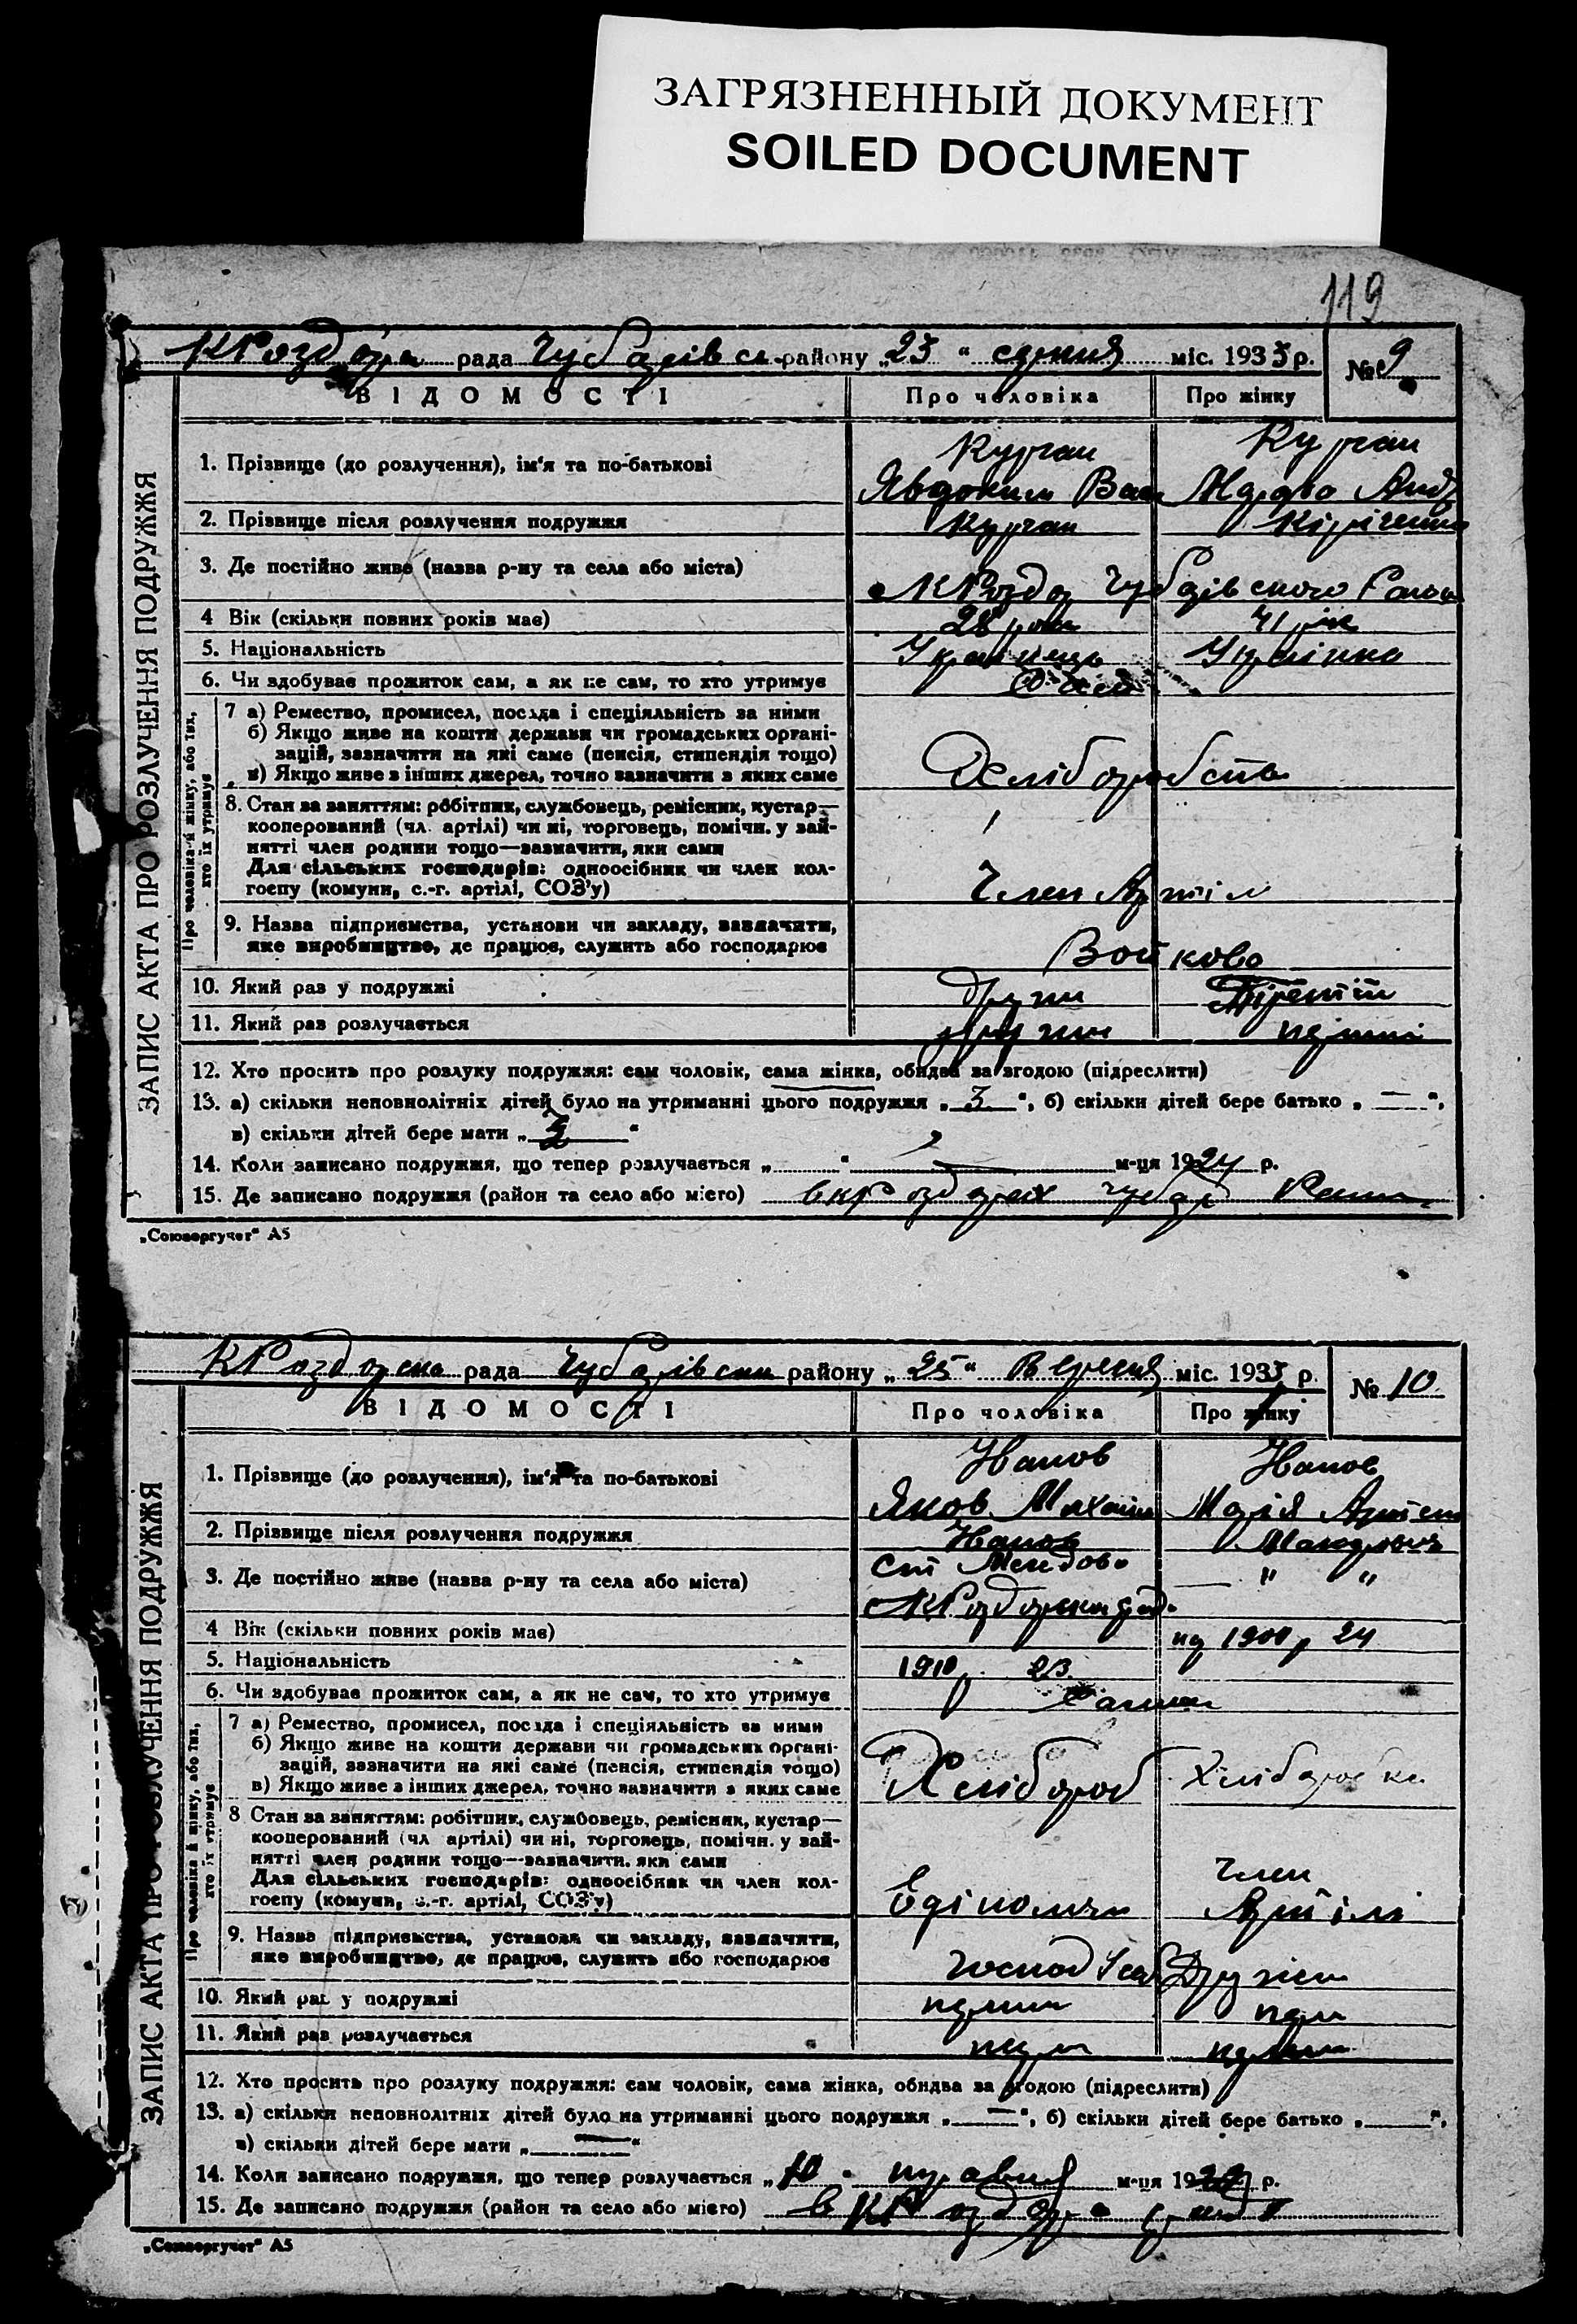 ЗАГРЯЗНЕННЫЙ ДОКУМЕНТ
SOILED DOCUMENT
119
рада Чубарівськ району „23“ серпня міс. 1933 р. № 9
ВІДОМОСТІ Про чоловіка Про жінку
ЗАПИС АКТА ПРО РОЗЛУЧЕННЯ ПОДРУЖЖЯ
Про чоловіка й жінку, або тих, хто їх утримує
1. Прізвище (до розлучення), ім'я та по-батькові Курган Курган
Явдоким Вас
2. Прізвище після розлучення подружжя Курган
3. Де постійно живе (назва р-ну та села або міста)
К Роздор Чубарівского
4 Вік (скільки повних років має) 28 41 рік
5. Національність Українець Українка
6. Чи здобуває прожиток сам, а як не сам, то хто утримує
7 а) Ремество, промисел, посада і спеціяльність за ними
б) Якщо живе на кошти держави чи громадських органі-
зацій, зазначити на які саме (пенсія, стипендія тощо)
в) Якщо живе з інших джерел, точно зазначити з яких саме Хліборобств
8. Стан за заняттям: робітник, службовець, ремісник, кустар—
кооперований (чл. артілі) чи ні, торговець, помічн. у зай-
нятті член родини тощо—зазначити, яки сами
Для сільських господарів: одноосібник чи член кол-
госпу (комуни, с.-г. артілі, СОЗ'у) Член Артілі
9. Назва підприємства, установи чи закладу, зазначити,
яке виробництво, де працює, служить або господарює Войково
10. Який раз у подружжі други Третій
11. Який раз розлучається други
12. Хто просить про розлуку подружжя: сам чоловік, сама жінка, обидва за згодою (підреслити)
13. а) скільки неповнолітніх дітей було на утриманні цього подружжя „ 3 “, б) скільки дітей бере батько „ — “,
в) скільки дітей бере мати „ “
14. Коли записано подружжя, що тепер розлучається „ “ — м-ця 1924 р.
15. Де записано подружжя (район та село або місто) в К Роздорах Чубар
„Союзоргучет“ А5
К Роздорска рада Чубарівськ району „25“ Вересня міс. 193 р. № 10
ВІДОМОСТІ Про чоловіка Про жінку
ЗАПИС АКТА ПРО РОЗЛУЧЕННЯ ПОДРУЖЖЯ
Про чоловіка й жінку, або тих, хто їх утримує
1. Прізвище (до розлучення), ім'я та по-батькові Иванов Иванов
Яков Михайл Марія Артем
2. Прізвище після розлучення подружжя Иванов
3. Де постійно живе (назва р-ну та села або міста) " "
4 Вік (скільки повних років має) 24
5. Національність 1910р. 23
6. Чи здобуває прожиток сам, а як не сам, то хто утримує
7 а) Ремество, промисел, посада і спеціяльність за ними
б) Якщо живе на кошти держави чи громадських органі-
зацій, зазначити на які саме (пенсія, стипендія тощо)
в) Якщо живе з інших джерел, точно зазначити з яких саме Хлібороб Хліборобка
8 Стан за заняттям: робітник, службовець, ремісник, кустар—
кооперований (чл артілі) чи ні, торговець, помічн. у зай-
нятті член родини тощо—зазначити, яки сами Член
Для сільських господарів: одноосібник чи член кол-
госпу (комуни, с.-г. артілі, СОЗ'у) Артілі
9. Назва підприємства, установи чи закладу, зазначити,
яке виробництво, де працює, служить або господарює
10. Який раз у подружжі перший перш
11. Який раз розлучається перш перший
12. Хто просить про розлуку подружжя: сам чоловік, сама жінка, обидва за згодою (підреслити)
13. а) скільки неповнолітніх дітей було на утриманні цього подружжя „ — “, б) скільки дітей бере батько „ “,
в) скільки дітей бере мати „ — “
14. Коли записано подружжя, що тепер розлучається „10“ м-ця 19 р.
15. Де записано подружжя (район та село або місто)
„Союзоргучет“ А5